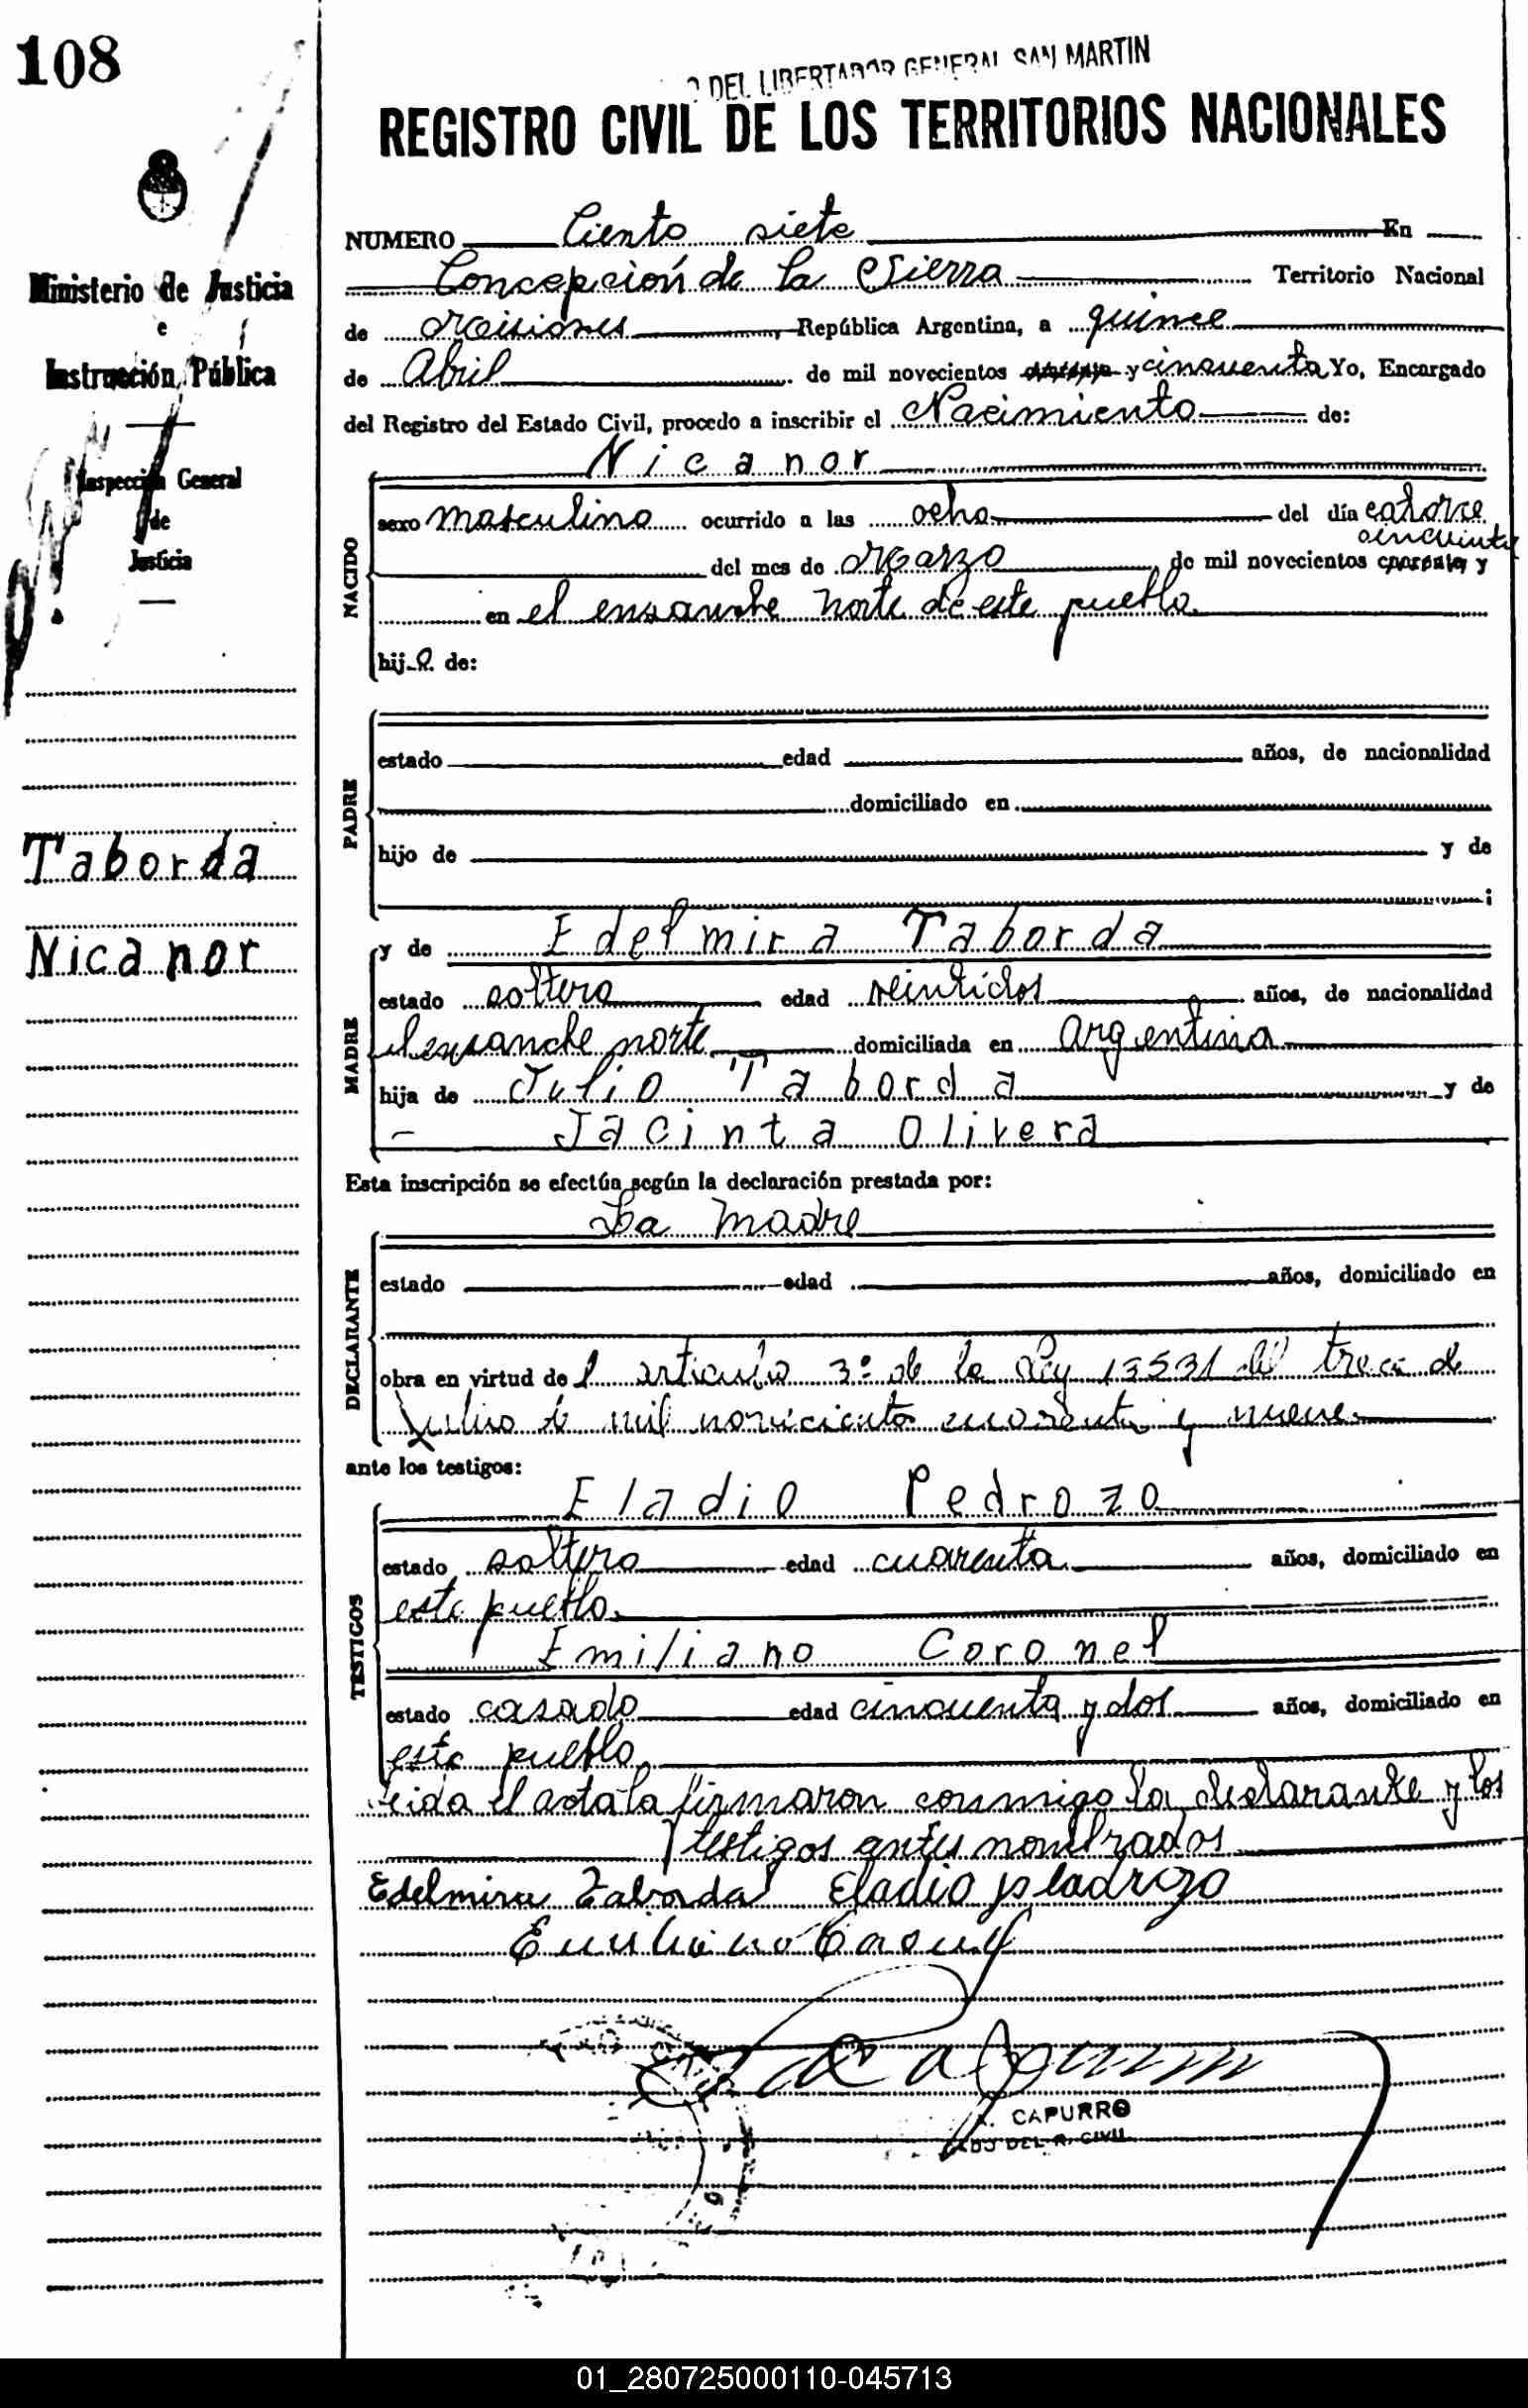 108
O DEL LIBERTADOR GENERAL SAN MARTIN
REGISTRO CIVIL DE LOS TERRITORIOS NACIONALES
Ministerio de Justicia
e
Instrucción Pública
Inspección General
de
Justicia
Taborda
Nicanor
NUMERO Ciento siete En
Concepción de la Sierra Territorio Nacional
de Misiones República Argentina, a quince
de Abril de mil novecientos y cincuenta Yo, Encargado
del Registro del Estado Civil, procedo a inscribir el Nacimiento de:
NACIDO
Nicanor
sexo masculino ocurrido a las ocho del día catorce
cincuenta
del mes de Marzo de mil novecientos cuarenta y
en el ensanche norte de este pueblo.
hijo de:
PADRE
estado edad años, de nacionalidad
domiciliado en
hijo de y de
;
MADRE
y de Edelmira Taborda
estado soltera edad veintidos años, de nacionalidad
el ensanche norte domiciliada en Argentina
hija de Julio Taborda y de
Jacinta Olivera
Esta inscripción se efectúa según la declaración prestada por:
DECLARANTE
La madre
estado edad años, domiciliado en
obra en virtud del articulo 3º de la Ley 13531 del trece de
Julio de mil novecientos cuarenta y nueve.
ante los testigos:
TESTIGOS
Eladio Pedrozo
estado soltero edad cuarenta años, domiciliado en
este pueblo.
Emiliano Coronel
estado casado edad cincuenta y dos años, domiciliado en
este pueblo.
Leida el acta la firmaron conmigo la declarante y los
testigos antes nombrados
Edelmira Taborda Eladio
Emiliano Coronel
CAPURRO
DEL R. CIVIL
01_280725000110-045713